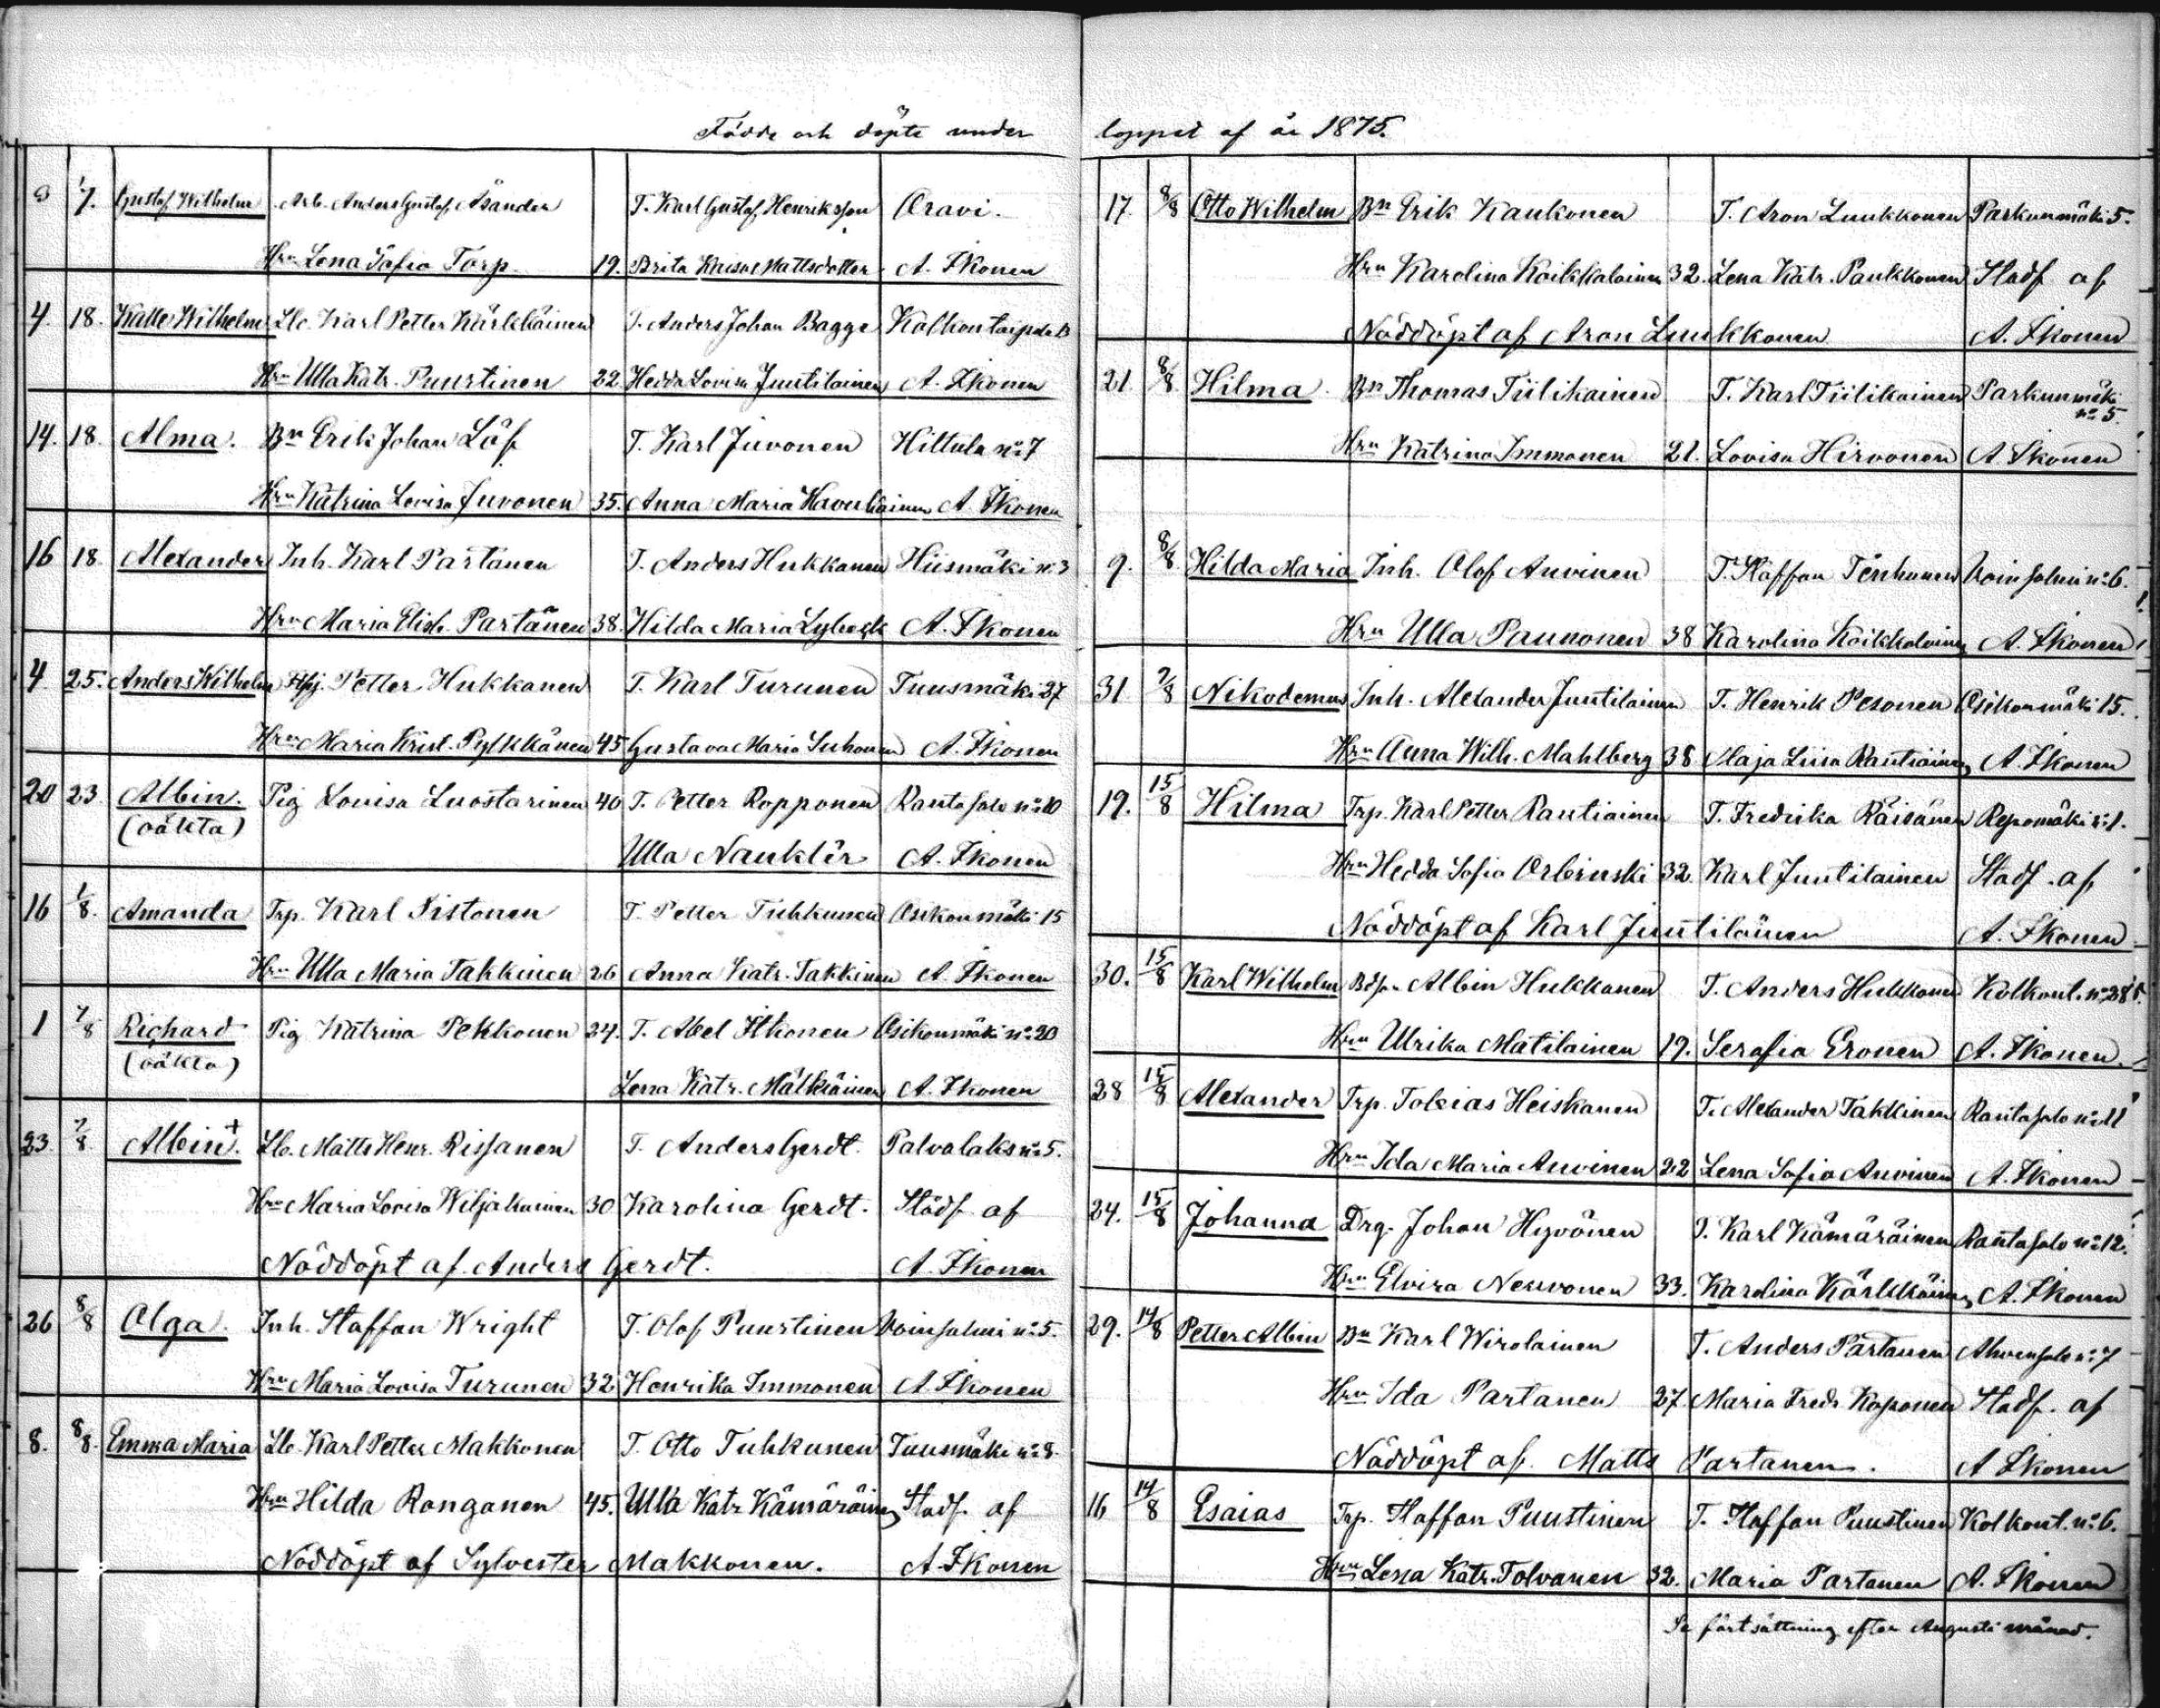 Födde och döpte under
3 1/7. Gustaf Wilhelm Arb. Anders Gustaf Åsander T. Karl Gustaf Henriksson Oravi.
Hru Lena Sofia Torp 19. Brita Kaisa Mattsdotter A. Ikonen
4. 18. Kalle Wilhelm Lb. Karl Petter Kärkkäinen T. Anders Johan Bagge Kolkontaipale 13
Hru Ulla Katr. Puustinen 22. Hedda Lovisa Juutilainen A. Ikonen
14. 18. Alma. Bn Erik Johan Löf T. Karl Juvonen Hiltula No 7
Hru Katrina Lovisa Juvonen 35. Anna Maria Haverinainen A. Ikonen
16 18. Alexander Inh. Karl Partanen T. Anders Hukkanen Hiismäki No 3
Hru Maria Elisb. Partanen 38. Hilda Maria Lybeck A. Ikonen
4 25. Anders Wilhelm Petter Hukkanen T. Karl Turunen Tuusmäki 27
Hru Maria Krist. Pylkkänen 45 Gustava Maria Suhonen A. Ikonen
20 23 Albin. Pig Lovisa Luostarinen 40 T. Petter Ropponen Rantasalo No 10
(oäkta)
Ulla Naukler A. Ikonen
16 1/8. Amanda Trp. Karl Sistonen T. Petter Tuhkunen Osikonmäki 15
Hru Ulla Maria Takkinen 26 Anna Katr. Takkinen A. Ikonen
1 7/8 Richard Pig Katrina Pekkonen 24. T. Abel Itkonen Osikonmäki No 20
(oäkta)
Lena Katr. Mälkiäinen A. Ikonen
23. 7/8. Albin + Lb. Matts Henr. Rissanen T. Anders Gerdt. Palvalaks No 5.
Hru Maria Lovisa Wiljakainen 30 Karolina Gerdt. Stadf. af
Nöddöpt af Anders Gerdt. A. Ikonen
26 8/8 Olga. Inh. Staffan Wright T. Olof Puustinen Voinsalmi No 5.
Hru Maria Lovisa Turunen 32 Henrika Immonen A. Ikonen
8. 8/8. Emma Maria Lb. Karl Petter Makkonen T. Otto Tuhkunen Tuusmäki No 8.
Hru Hilda Ronganen 45. Ulla Katr Kämäräinen Stadf. af
Nöddöpt af Sylvester Makkonen. A. Ikonen
loppet af år 1875.
17. 8/8 Otto Wilhelm Bn Erik Kaukonen T. Aron Luukkonen Parkunmäki 5.
Hru Karolina Koikkalainen 32. Lena Katr. Paukkonen Stadf af
Nöddöpt af Aron Luukkonen A. Ikonen
21. 8/8. Hilma. Bn Thomas Tiilikainen T. Karl Tiilikainen Parkunmäki
No 5.
Hru Katrina Immonen 21. Lovisa Hirvonen A. Ikonen
9. 8/8. Hilda Maria Inh. Olof Auvinen T. Staffan Tenhunen Voinsalmi No 6.
Hru Ulla Paunonen 38 Karolina Koikkalainen A. Ikonen
31 7/8 Nikodemus Inh. Alexander Juutilainen T. Henrik Pesonen Osikonmäki 15.
Hru Anna Wilh. Mahlberg 38 Maja Liisa Rautiainen A. Ikonen
19. 15/8 Hilma Trp. Karl Petter Rautiainen T. Fredrika Räisänen Repomäki No 1.
Hru Hedda Sofia Orbinski 32. Karl Juutilainen Stadf. af
Nöddöpt af Karl Juutilainen A. Ikonen
30. 15/8 Karl Wilhelm Albin Hukkanen T. Anders Hukkanen Kolkont. No 28
Hru Ulrika Matilainen 19. Serafia Eronen A. Ikonen
28 15/8 Alexander Trp. Tobias Heiskanen T. Alexander Takkinen Rantasalo No 11
Hru Ida Maria Auvinen 22 Lena Sofia Auvinen A. Ikonen
24. 15/8 Johanna Drg. Johan Hyvönen T. Karl Kämäräinen Rantasalo No 12.
Hru Elvira Nenvonen 33. Karolina Kärkkäinen A. Ikonen
29. 14/8 Petter Albin Bn Karl Wirolainen T. Anders Partanen Ahvensalo No 7
Hru Ida Partanen 27. Maria Fredr. Koponen Stadf. af
Nöddöpt af. Matts Partanen. A Ikonen
16 14/8 Esaias Trp. Staffan Puustinen T. Staffan Puustinen Kolkont. No 6.
Hru Lena Katr. Tolvanen 32. Maria Partanen A. Ikonen
Se fortsättning efter Augusti månad.